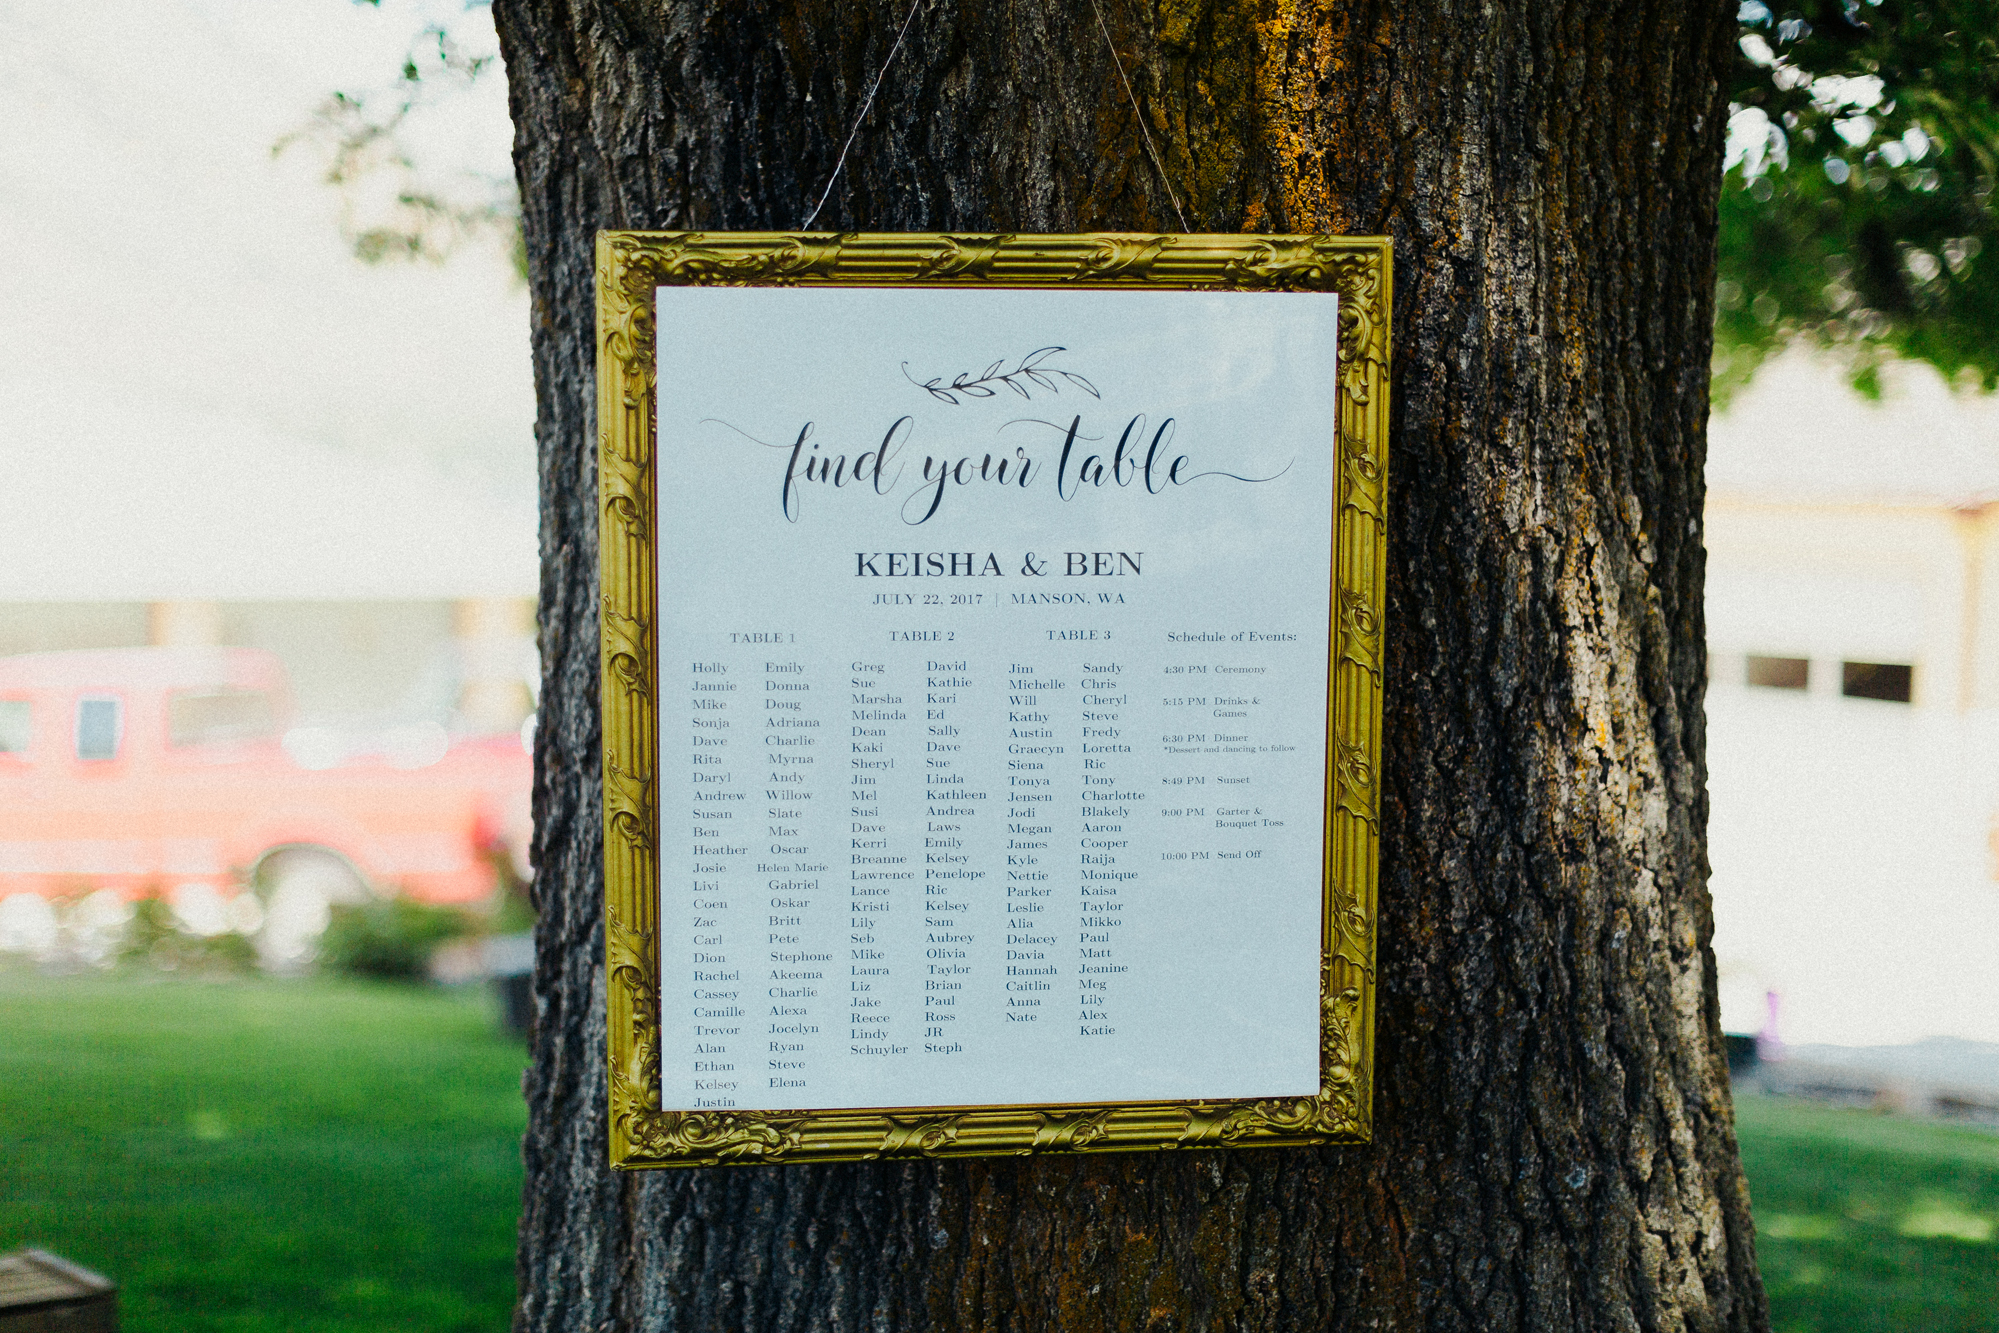 find your table
KEISHA & BEN
JULY 22, 2017 | MANSON, WA
TABLE 1
Holly Emily
Jannie Donna
Mike Doug
Sonja Adriana
Dave Charlie
Rita Myrna
Daryl Andy
Andrew Willow
Susan Slate
Ben Max
Heather Oscar
Josie Helen Marie
Livi Gabriel
Coen Oskar
Zac Britt
Carl Pete
Dion Stephone
Rachel Akeema
Cassey Charlie
Camille Alexa
Trevor Jocelyn
Alan Ryan
Ethan Steve
Kelsey Elena
Justin
TABLE 2
Greg David
Sue Kathie
Marsha Kari
Melinda Ed
Dean Sally
Kaki Dave
Sheryl Sue
Jim Linda
Mel Kathleen
Susi Andrea
Dave Laws
Kerri Emily
Breanne Kelsey
Lawrence Penelope
Lance Ric
Kristi Kelsey
Lily Sam
Seb Aubrey
Mike Olivia
Laura Taylor
Liz Brian
Jake Paul
Reece Ross
Lindy JR
Schuyler Steph
TABLE 3
Jim Sandy
Michelle Chris
Will Cheryl
Kathy Steve
Austin Fredy
Graecyn Loretta
Siena Ric
Tonya Tony
Jensen Charlotte
Jodi Blakely
Megan Aaron
James Cooper
Kyle Raija
Nettie Monique
Parker Kaisa
Leslie Taylor
Alia Mikko
Delacey Paul
Davia Matt
Hannah Jeanine
Caitlin Meg
Anna Lily
Nate Alex
Katie
Schedule of Events:
4:30 PM Ceremony
5:15 PM Drinks &
Games
6:30 PM Dinner
*Dessert and dancing to follow
8:49 PM Sunset
9:00 PM Garter &
Bouquet Toss
10:00 PM Send Off